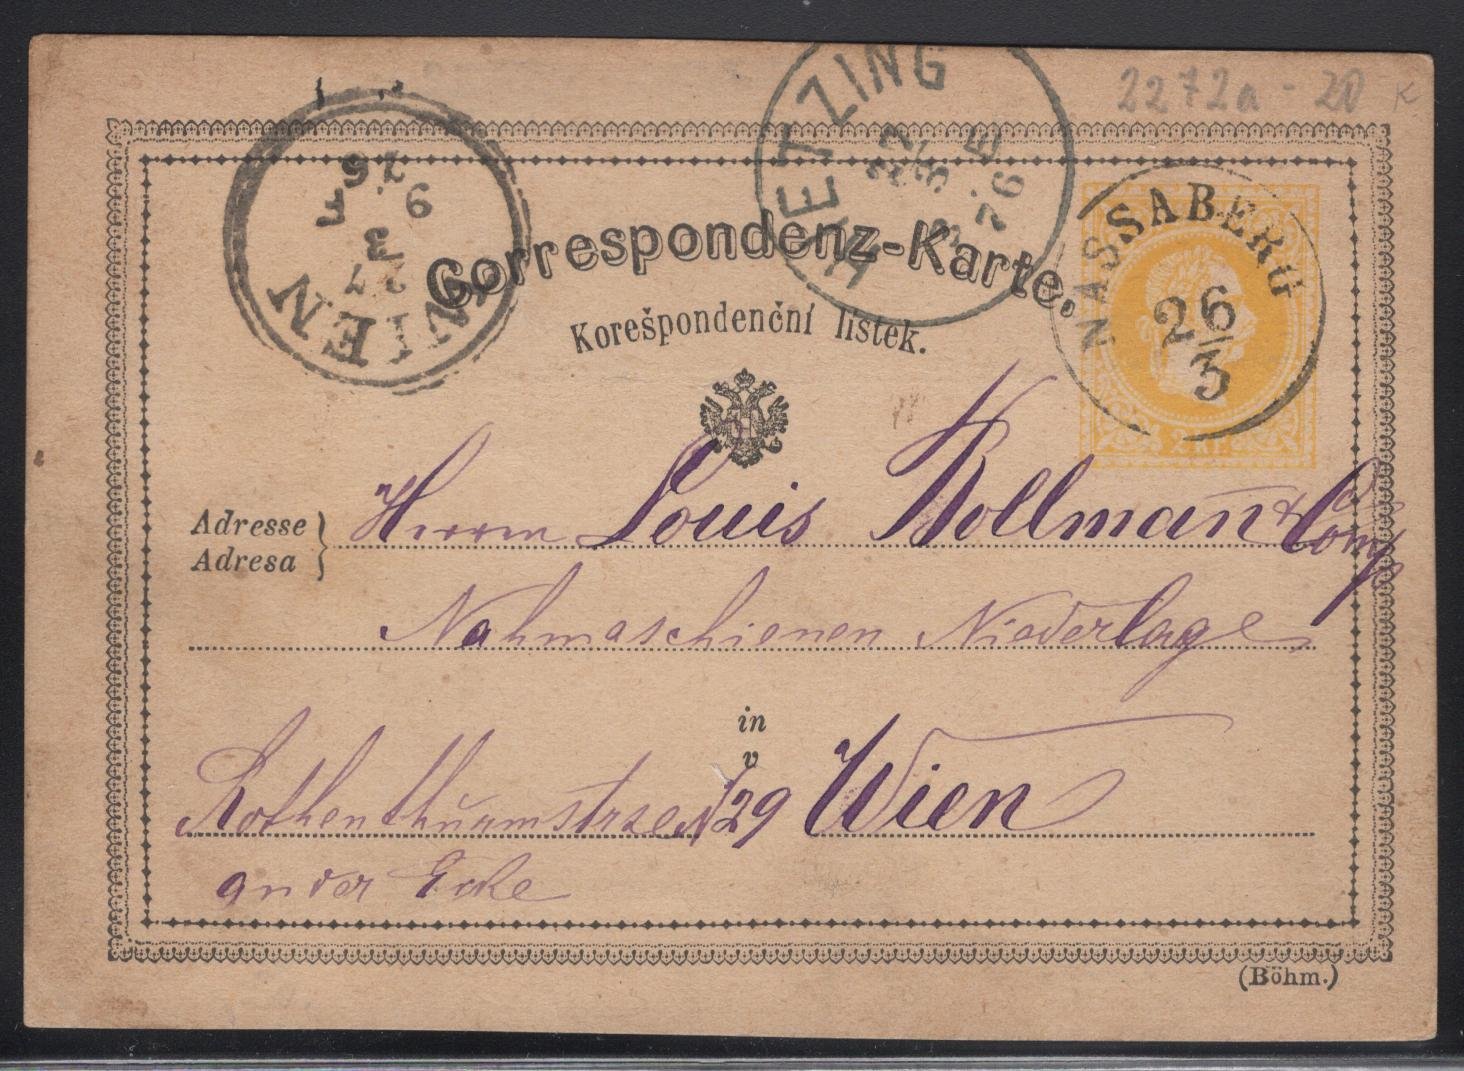 2272a - 20 K
HIETZING
27
3
76
E
WIEN
27
3
9 F
76
NASSABERG
26
3
Correspondenz-Karte.
Korešpondenční lístek.
2 KR.
Adresse
Adresa
Herrn Louis Bollmann & Comp
Nahmaschienen Niederlage
in
v
Rothenthurmstrsse N 29 Wien
an der Ecke
(Böhm.)